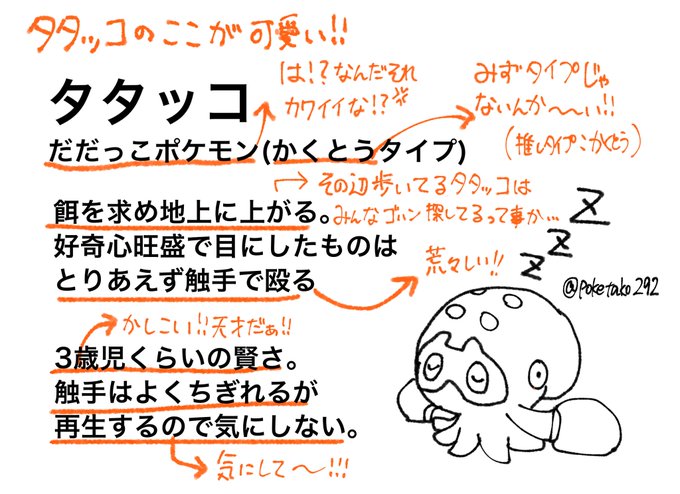 タタッコのここが可愛い!!
タタッコ
は!?なんだそれ
カワイイな!?
みずタイプじゃ
ないんか〜〜い!!
(推しタイプこかくとう)
だだっこポケモン(かくとうタイプ)
その辺歩いてるタタッコは
みんなゴハン探してるって事か…
餌を求め地上に上がる。
好奇心旺盛で目にしたものは
とりあえず触手で殴る
荒々しい!!
z z z
@poketako292
かしこい!!天才だぁ!!
3歳児くらいの賢さ。
触手はよくちぎれるが
再生するので気にしない。
気にして〜!!!